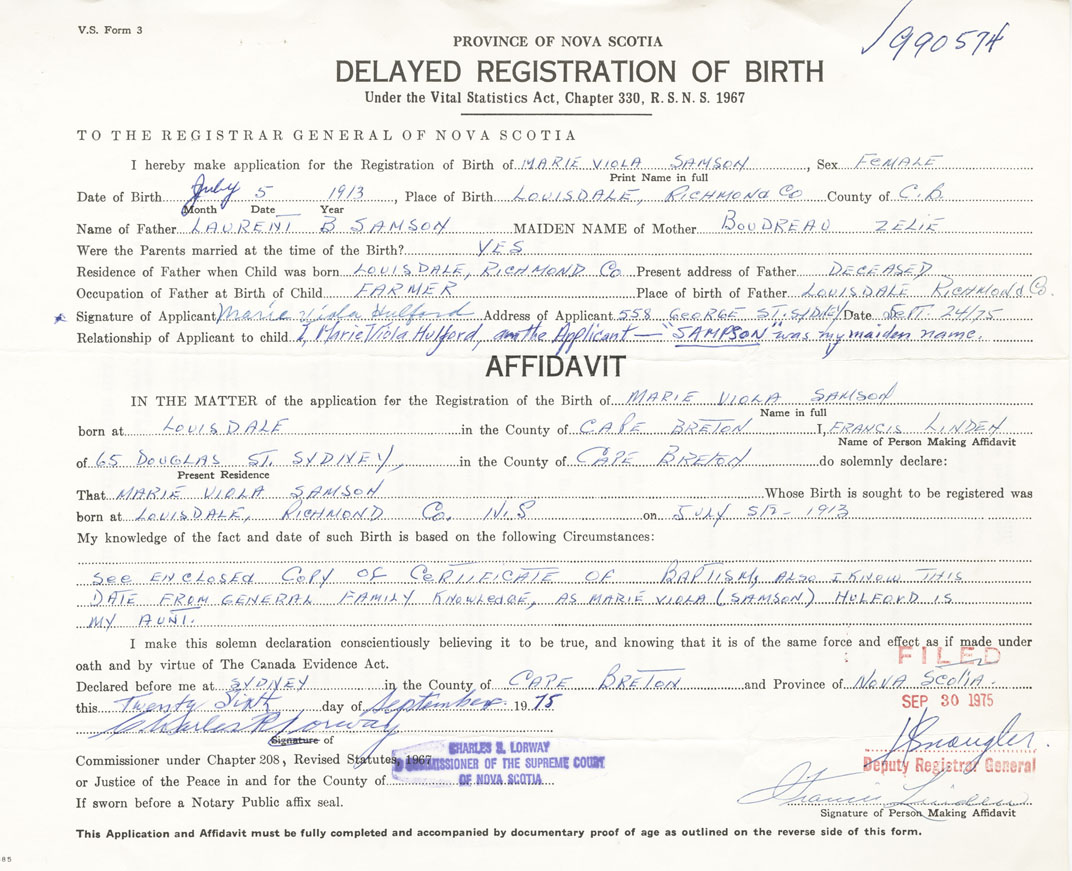 V.S. Form 3
√990574
PROVINCE OF NOVA SCOTIA
DELAYED REGISTRATION OF BIRTH
Under the Vital Statistics Act, Chapter 330, R. S. N. S. 1967
TO THE REGISTRAR GENERAL OF NOVA SCOTIA
I hereby make application for the Registration of Birth of MARIE VIOLA SAMSON, Sex FEMALE
Print Name in full
Date of Birth July 5 1913, Place of Birth LOUISDALE, RICHMOND CO County of C.B.
Month Date Year
Name of Father LAURENT B SAMSON MAIDEN NAME of Mother BOUDREAU ZELIE
Were the Parents married at the time of the Birth? YES
Residence of Father when Child was born LOUISDALE, RICHMOND Co Present address of Father DECEASED
Occupation of Father at Birth of Child FARMER Place of birth of Father LOUISDALE RICHMOND Co.
Signature of Applicant Marie Viola Hulford Address of Applicant 558 GEORGE ST. SYDNEY Date SEPT. 24/75
Relationship of Applicant to child I, Marie Viola Hulford, am the Applicant — "SAMPSON" was my maiden name.
AFFIDAVIT
IN THE MATTER of the application for the Registration of the Birth of MARIE VIOLA SAMSON
Name in full
born at LOUISDALE in the County of CAPE BRETON I, FRANCIS LINDEN
Name of Person Making Affidavit
of 65 DOUGLAS ST. SYDNEY, in the County of CAPE BRETON do solemnly declare:
Present Residence
That MARIE VIOLA SAMSON Whose Birth is sought to be registered was
born at LOUISDALE, RICHMOND Co. N.S on JULY 5TH - 1913
My knowledge of the fact and date of such Birth is based on the following Circumstances:
SEE ENCLOSED COPY OF CERTIFICATE OF BAPTISM, ALSO I KNOW THIS
DATE FROM GENERAL FAMILY KNOWLEDGE, AS MARIE VIOLA (SAMSON) HULFORD IS
MY AUNT.
I make this solemn declaration conscientiously believing it to be true, and knowing that it is of the same force and effect as if made under
oath and by virtue of The Canada Evidence Act.
FILED
Declared before me at SYDNEY in the County of CAPE BRETON and Province of NOVA SCOTIA.
this Twenty Sixth day of September 1975
SEP 30 1975
Charles R Lorway
Signature of
Commissioner under Chapter 208, Revised Statutes, 1967
CHARLES R. LORWAY
COMMISSIONER OF THE SUPREME COURT
OF NOVA SCOTIA
Deputy Registrar General
or Justice of the Peace in and for the County of
If sworn before a Notary Public affix seal.
Francis Linden
Signature of Person Making Affidavit
This Application and Affidavit must be fully completed and accompanied by documentary proof of age as outlined on the reverse side of this form.
85